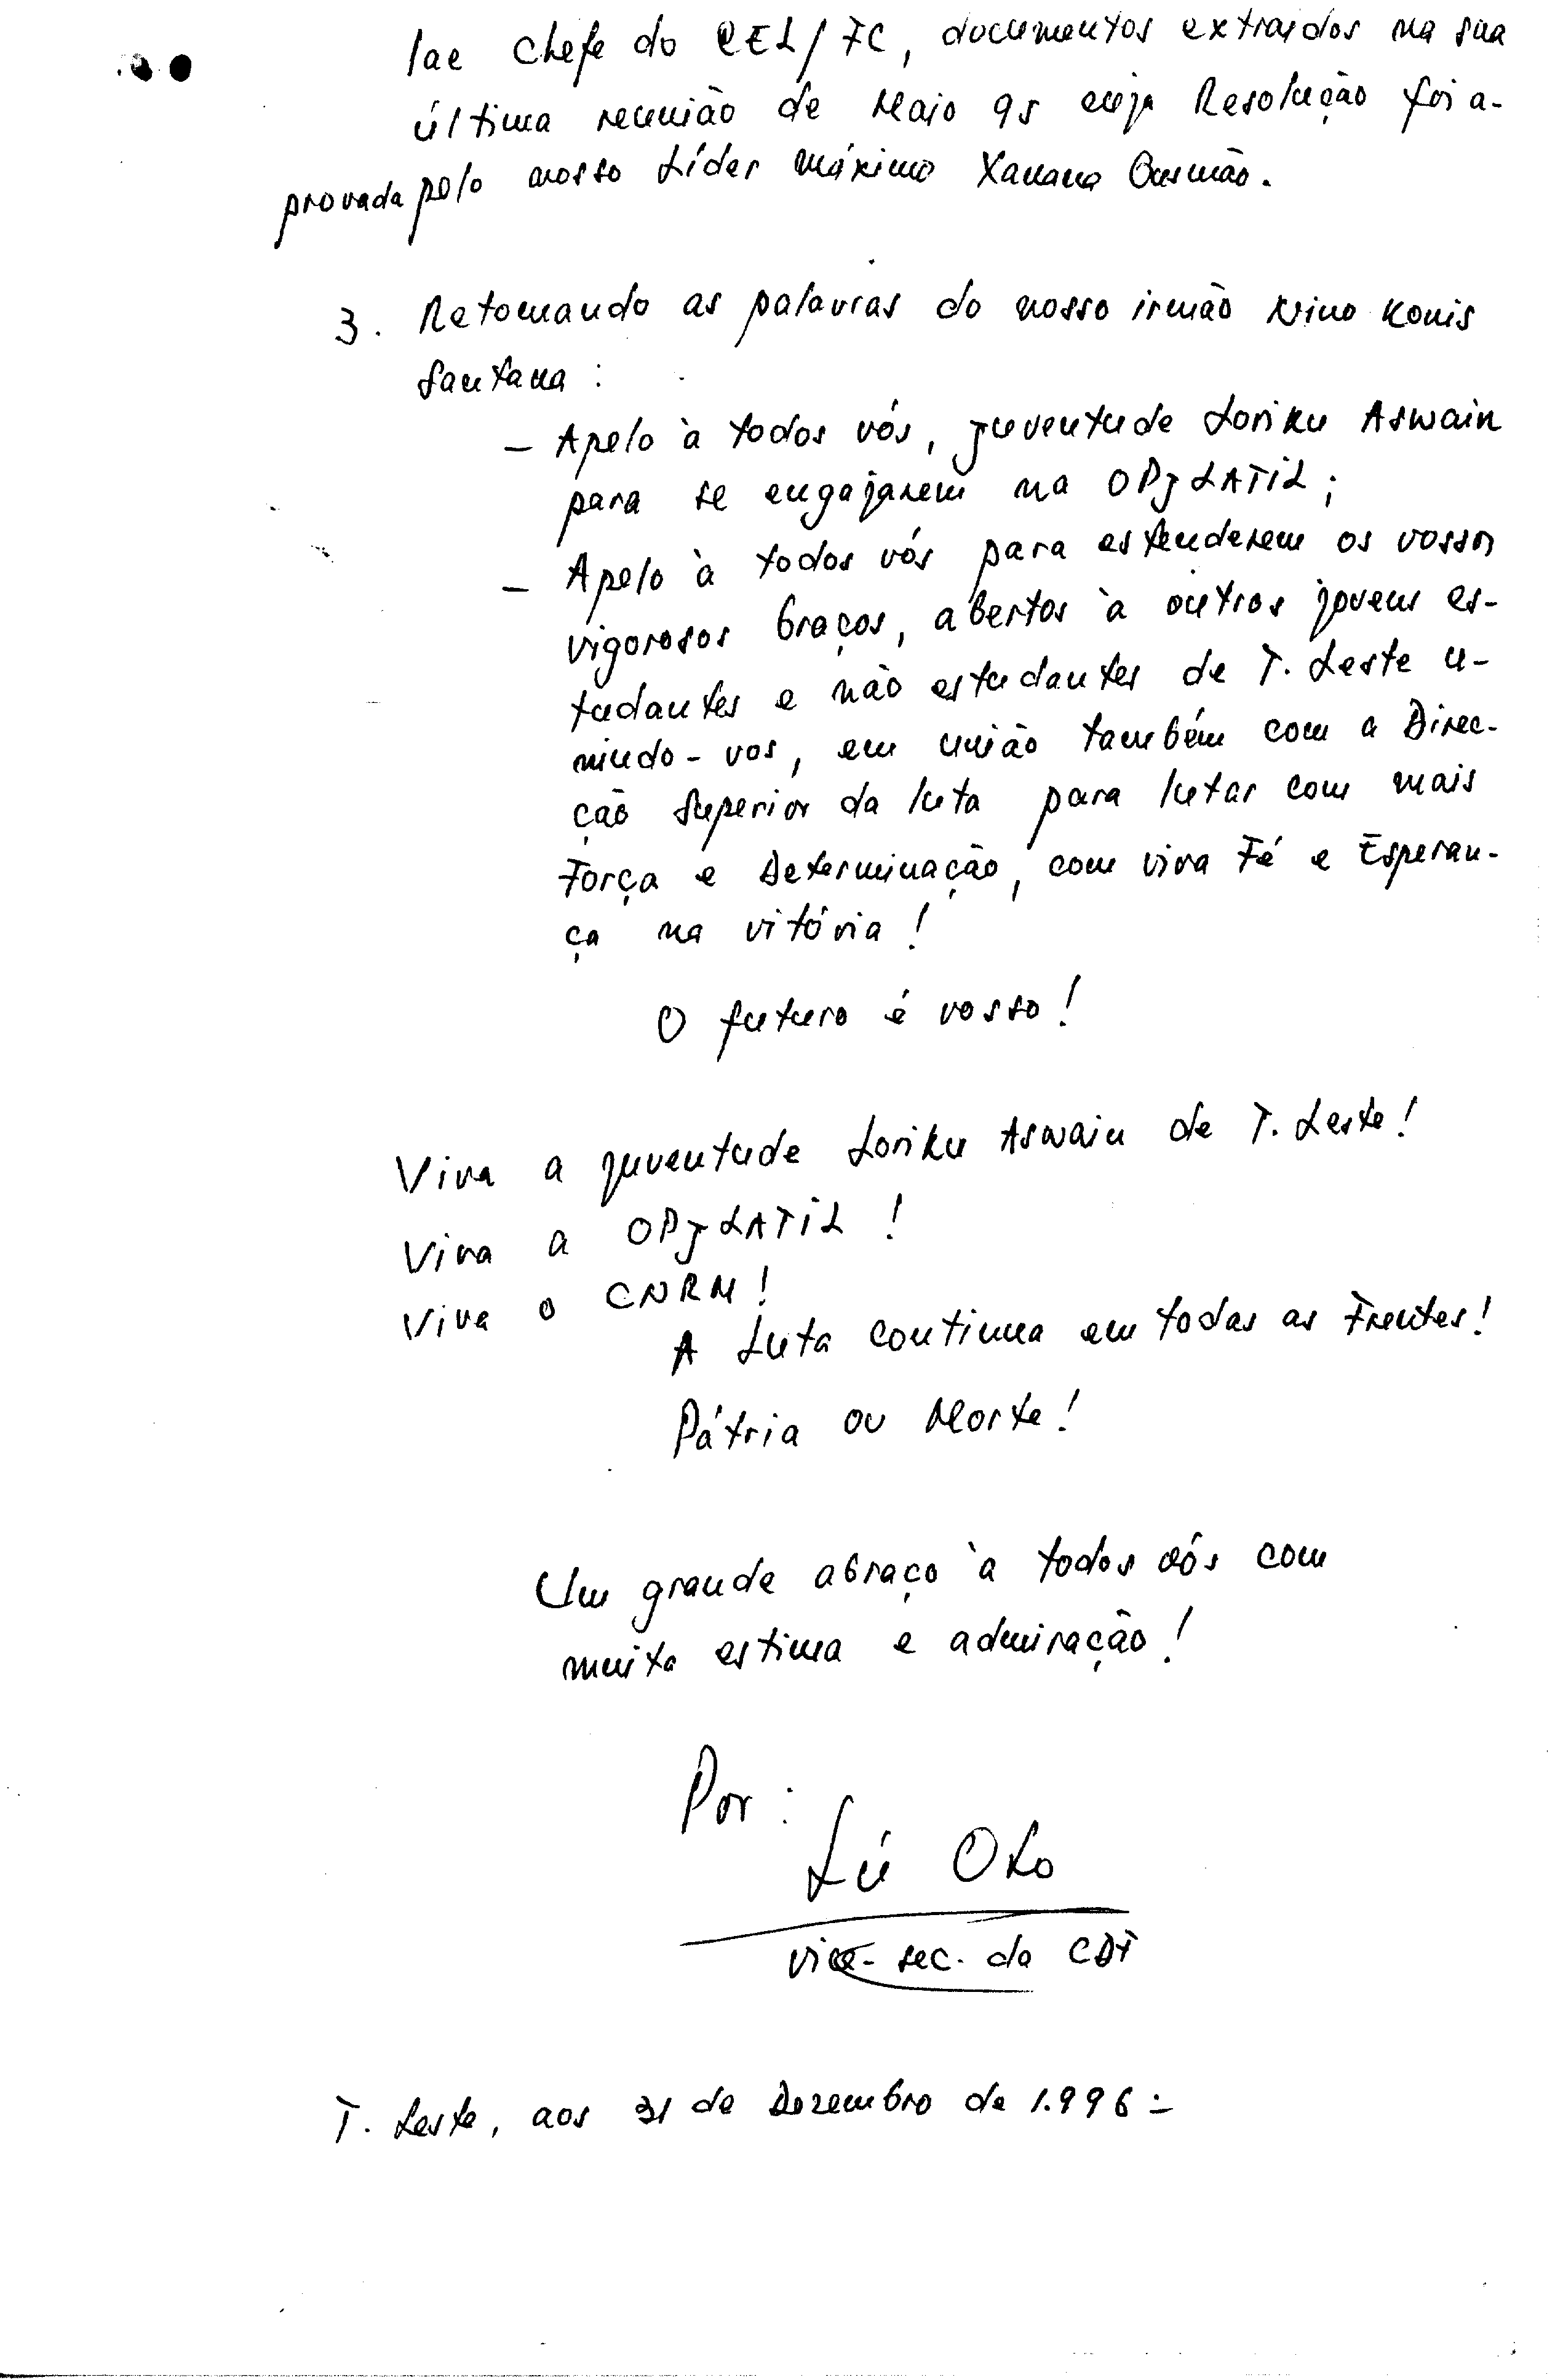 lae Chefe do CEL/FC, documentos extraídos na sua
última reunião de Maio 95 cuja Resolução foi a-
provada pelo nosso Líder máximo Xanana Gusmão.
3. Retomando as palavras do nosso irmão Nino Konis
Santana :
- Apelo à todos vós, juventude Loriku Aswain
para se engajarem na OPJLATIL ;
- Apelo à todos vós para estenderem os vossos
vigorosos braços, abertos à outros jovens es-
tudantes e não estudantes de T. Leste u-
nindo-vos, em união também com a Direc-
ção Superior da luta para lutar com mais
Força e Determinação, com viva Fé e Esperan-
ça na vitória !
O futuro é vosso !
Viva a juventude Loriku Aswain de T. Leste !
Viva a OPJLATIL !
Viva o CNRM !
A Luta continua em todas as Frentes !
Pátria ou Morte !
Um grande abraço à todos vós com
muita estima e admiração !
Por :
Lú OLo
vice-sec. da CDF
T. Leste, aos 31 de Dezembro de 1.996 =